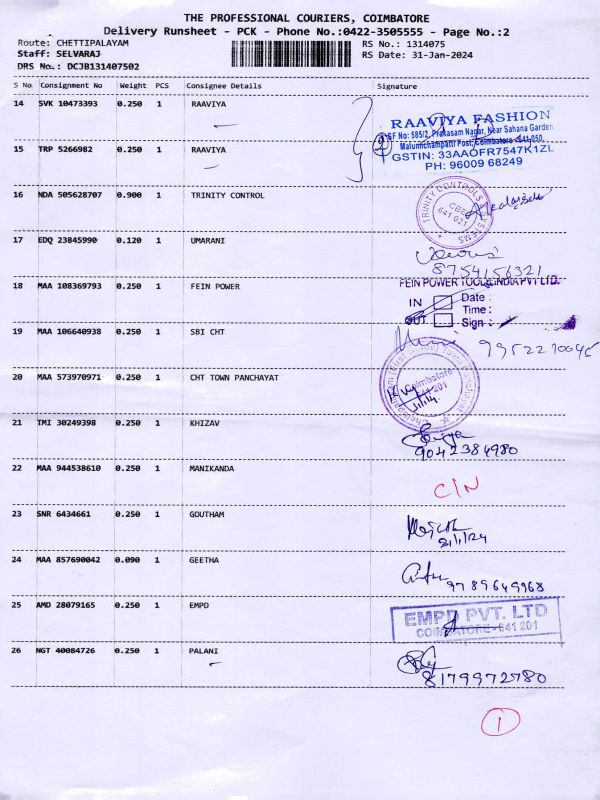 THE PROFESSIONAL COURIERS, COIMBATORE
Delivery Runsheet - PCK - Phone No.:0422-3505555 - Page No.:2
Route: CHETTIPALAYAM RS No.: 1314075
Staff: SELVARAJ RS Date: 31-Jan-2024
DRS No.: DCJB131407502
S No Consignment No Weight PCS Consignee Details Signature
14 SVK 10473393 0.250 1 RAAVIYA
RAAVIYA FASHION
SF No: 585/2, Prakasam Nagar, Near Sahana Garden
Malumichampatti Post, Coimbatore -641 050.
GSTIN: 33AAOFR7547K1ZL
PH: 96009 68249
15 TRP 5266982 0.250 1 RAAVIYA
16 NDA 505628707 0.900 1 TRINITY CONTROL
TRINITY CONTROLS SYSTEMS
CBE
641 021
17 EDQ 23845990 0.120 1 UMARANI
8754156321
18 MAA 108369793 0.250 1 FEIN POWER
FEIN POWER TOOLS INDIA PVT LTD.
IN Date :
Time :
OUT Sign :
19 MAA 106640938 0.250 1 SBI CHT
20 MAA 573970971 0.250 1 CHT TOWN PANCHAYAT
Coimbatore
641 201
21 TMI 30249398 0.250 1 KHIZAV
9042384980
22 MAA 944538610 0.250 1 MANIKANDA
C/N
23 SNR 6434661 0.250 1 GOUTHAM
31/1/24
24 MAA 857690042 0.090 1 GEETHA
9789649968
25 AMD 28079165 0.250 1 EMPD
EMPD PVT. LTD
COIMBATORE - 641 201
26 NGT 40084726 0.250 1 PALANI
8179972780
1